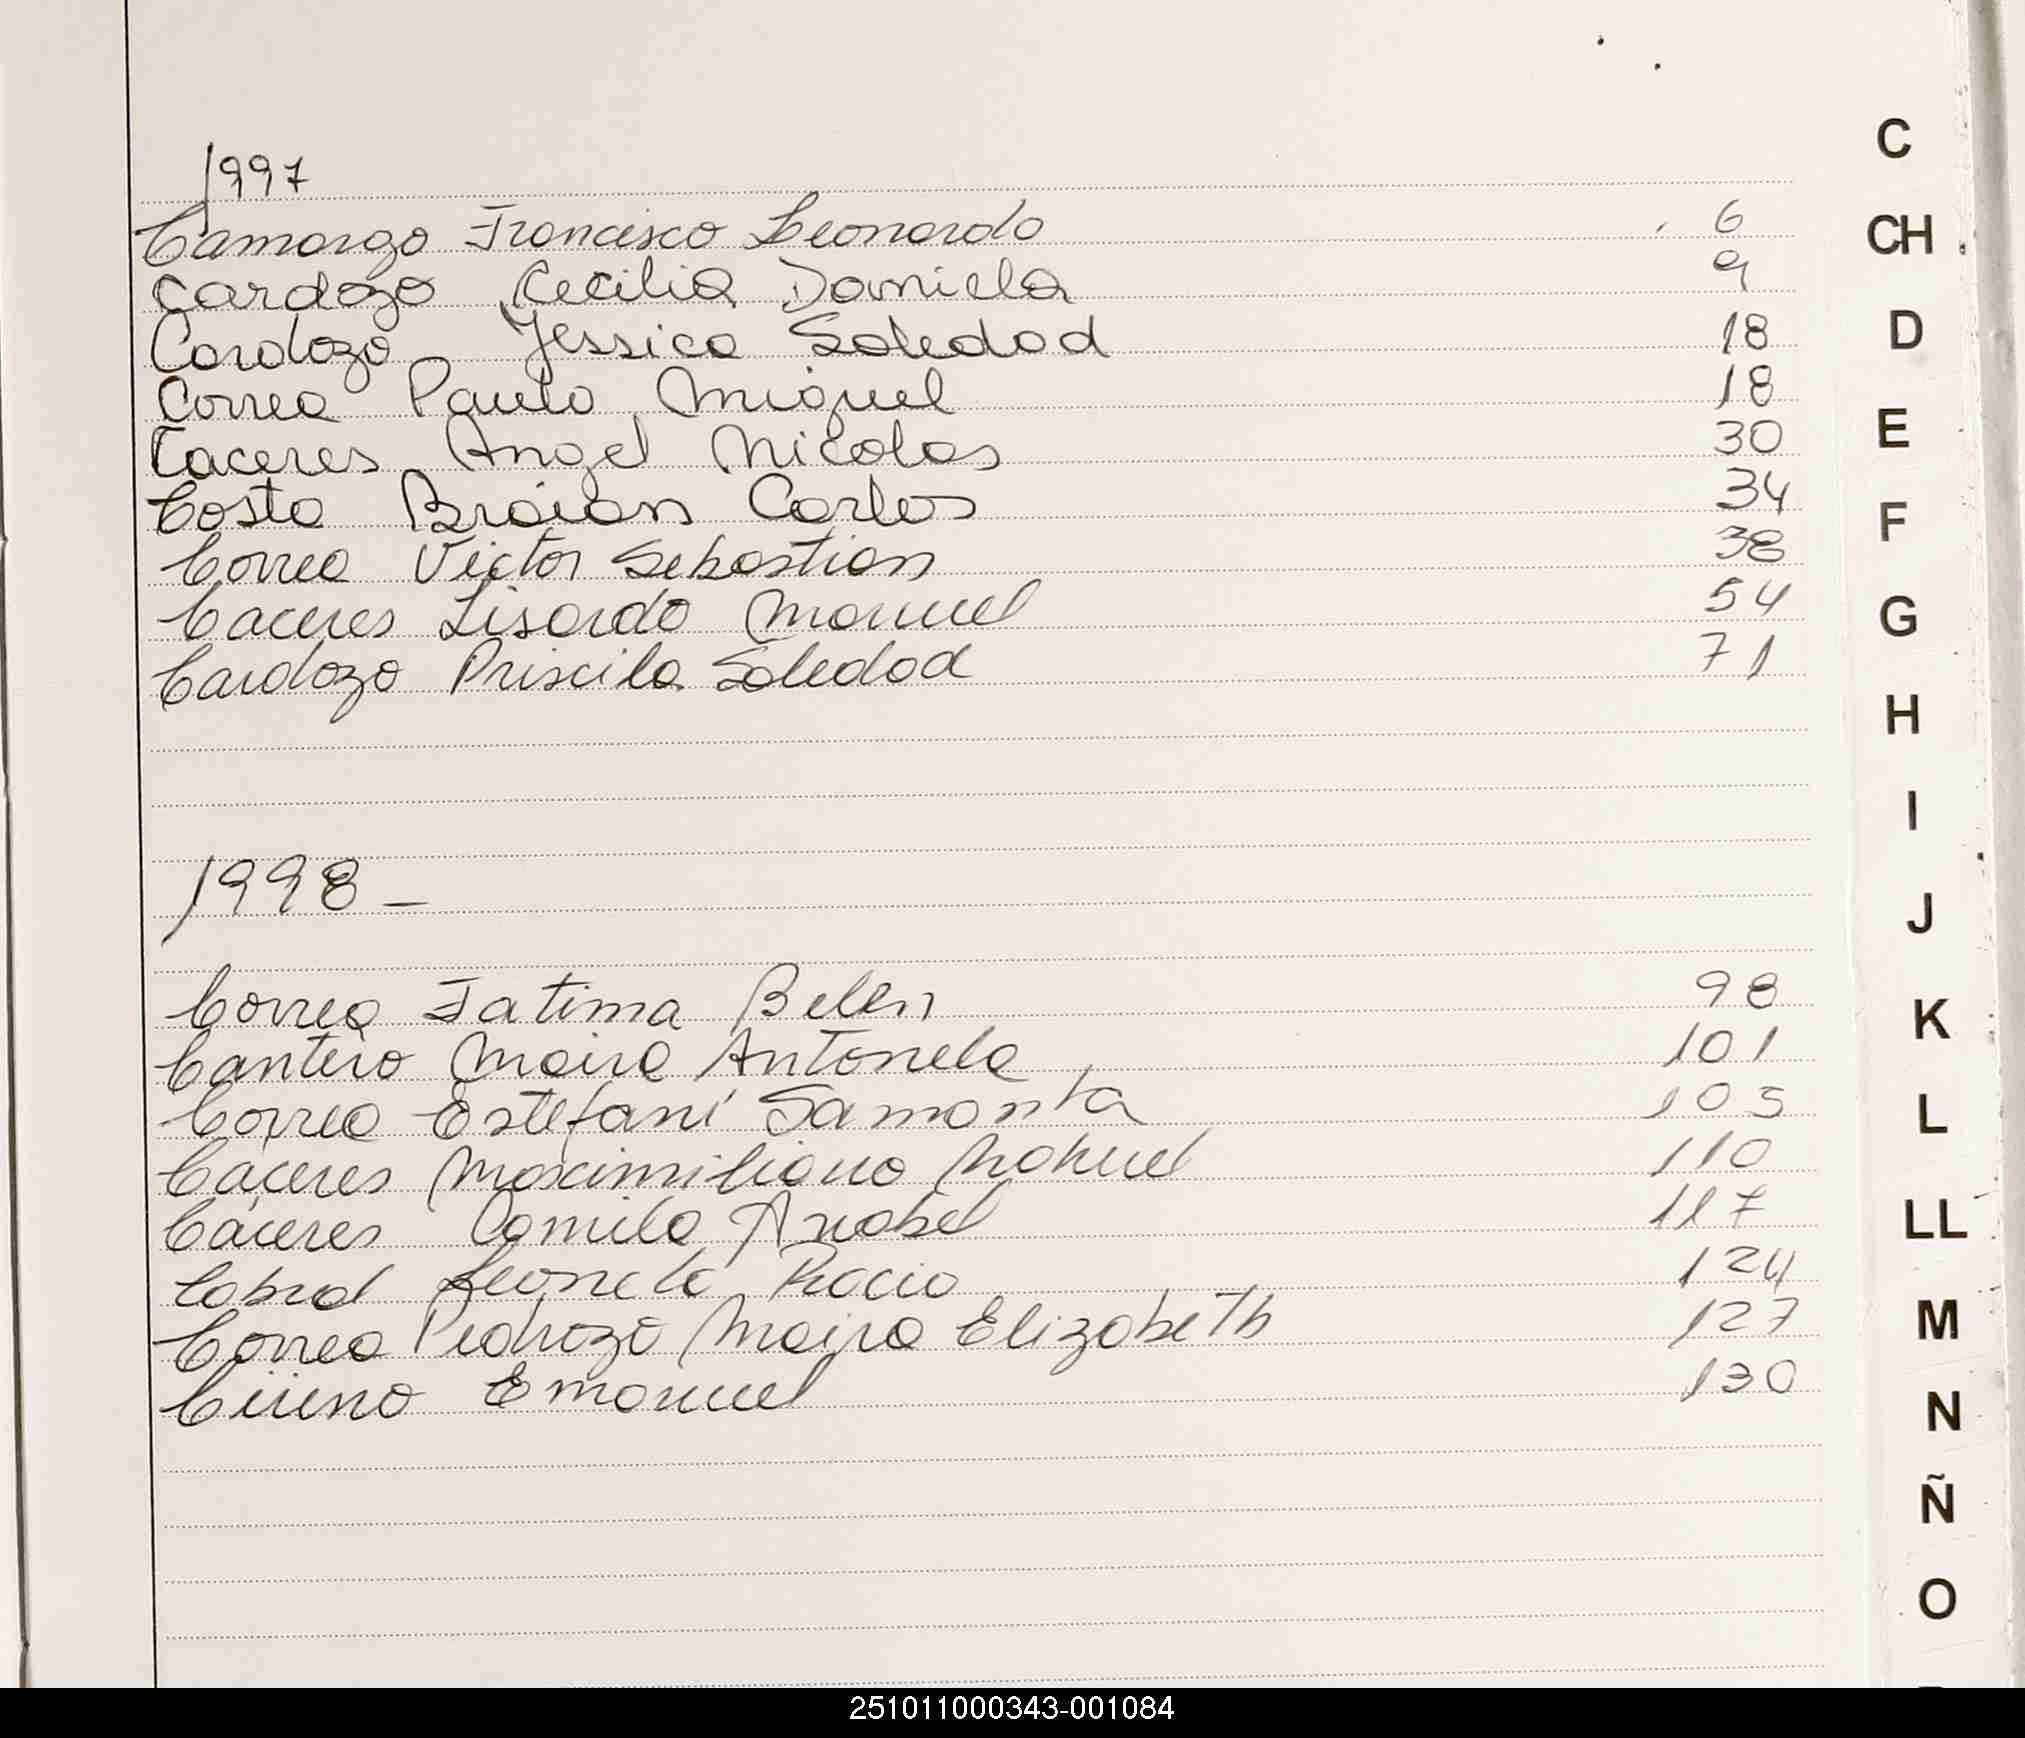 1997
Camargo Francisco Leonardo 6
Cardozo Cecilia Daniela 9
Cardozo Jessica Soledad 18
Correa Paulo Miguel 18
Caceres Angel Nicolas 30
Costa Braian Carlos 34
Correa Victor Sebastian 38
Caceres Lisardo Manuel 54
Cardozo Priscila Soledad 71
1998 –
Correa Fatima Belen 98
Cantero Maira Antonela 101
Correa Estefani Samanta 105
Caceres Maximiliano Nahuel 110
Cáceres Camila Anabel 117
Cabral Rocio 124
Correa Pedrozo Maira Elizabeth 127
Emanuel 130
C
CH
D
E
F
G
H
I
J
K
L
LL
M
N
Ñ
O
251011000343-001084